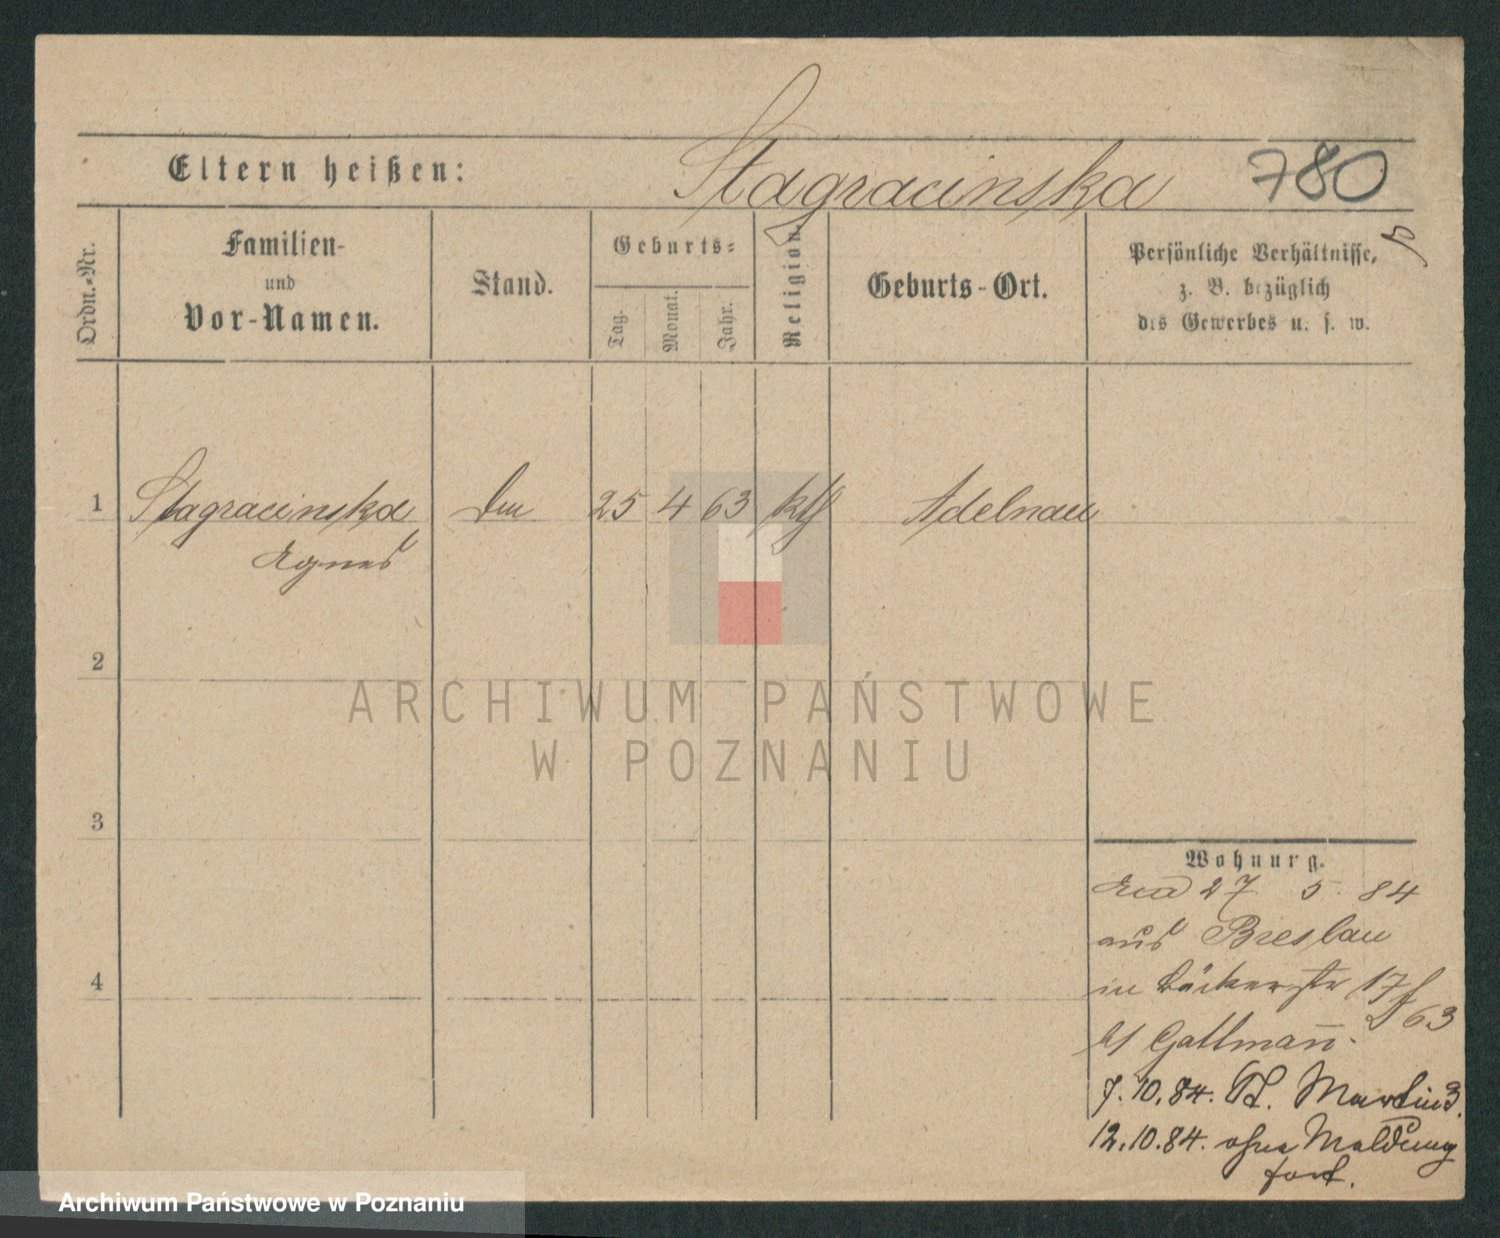 Eltern heißen: Stagracinska 780
Ordn.-Nr.
Familien-
und
Vor-Namen.
Stand.
Geburts-
Tag.
Monat.
Jahr.
Religion.
Geburts-Ort.
Persönliche Verhältnisse,
z. B. bezüglich
des Gewerbes u. s. w.
1 Stagracinska 25 4 63 kth Adelnau
Agnes
2
ARCHIWUM PAŃSTWOWE
W POZNANIU
3
Wohnung.
27 5 84
aus Breslau
4
in Bäckerstr 17
63
b/ Gallmann.
7.10.84. St. Martin 3.
12.10.84. ohne Meldung
fort.
Archiwum Państwowe w Poznaniu